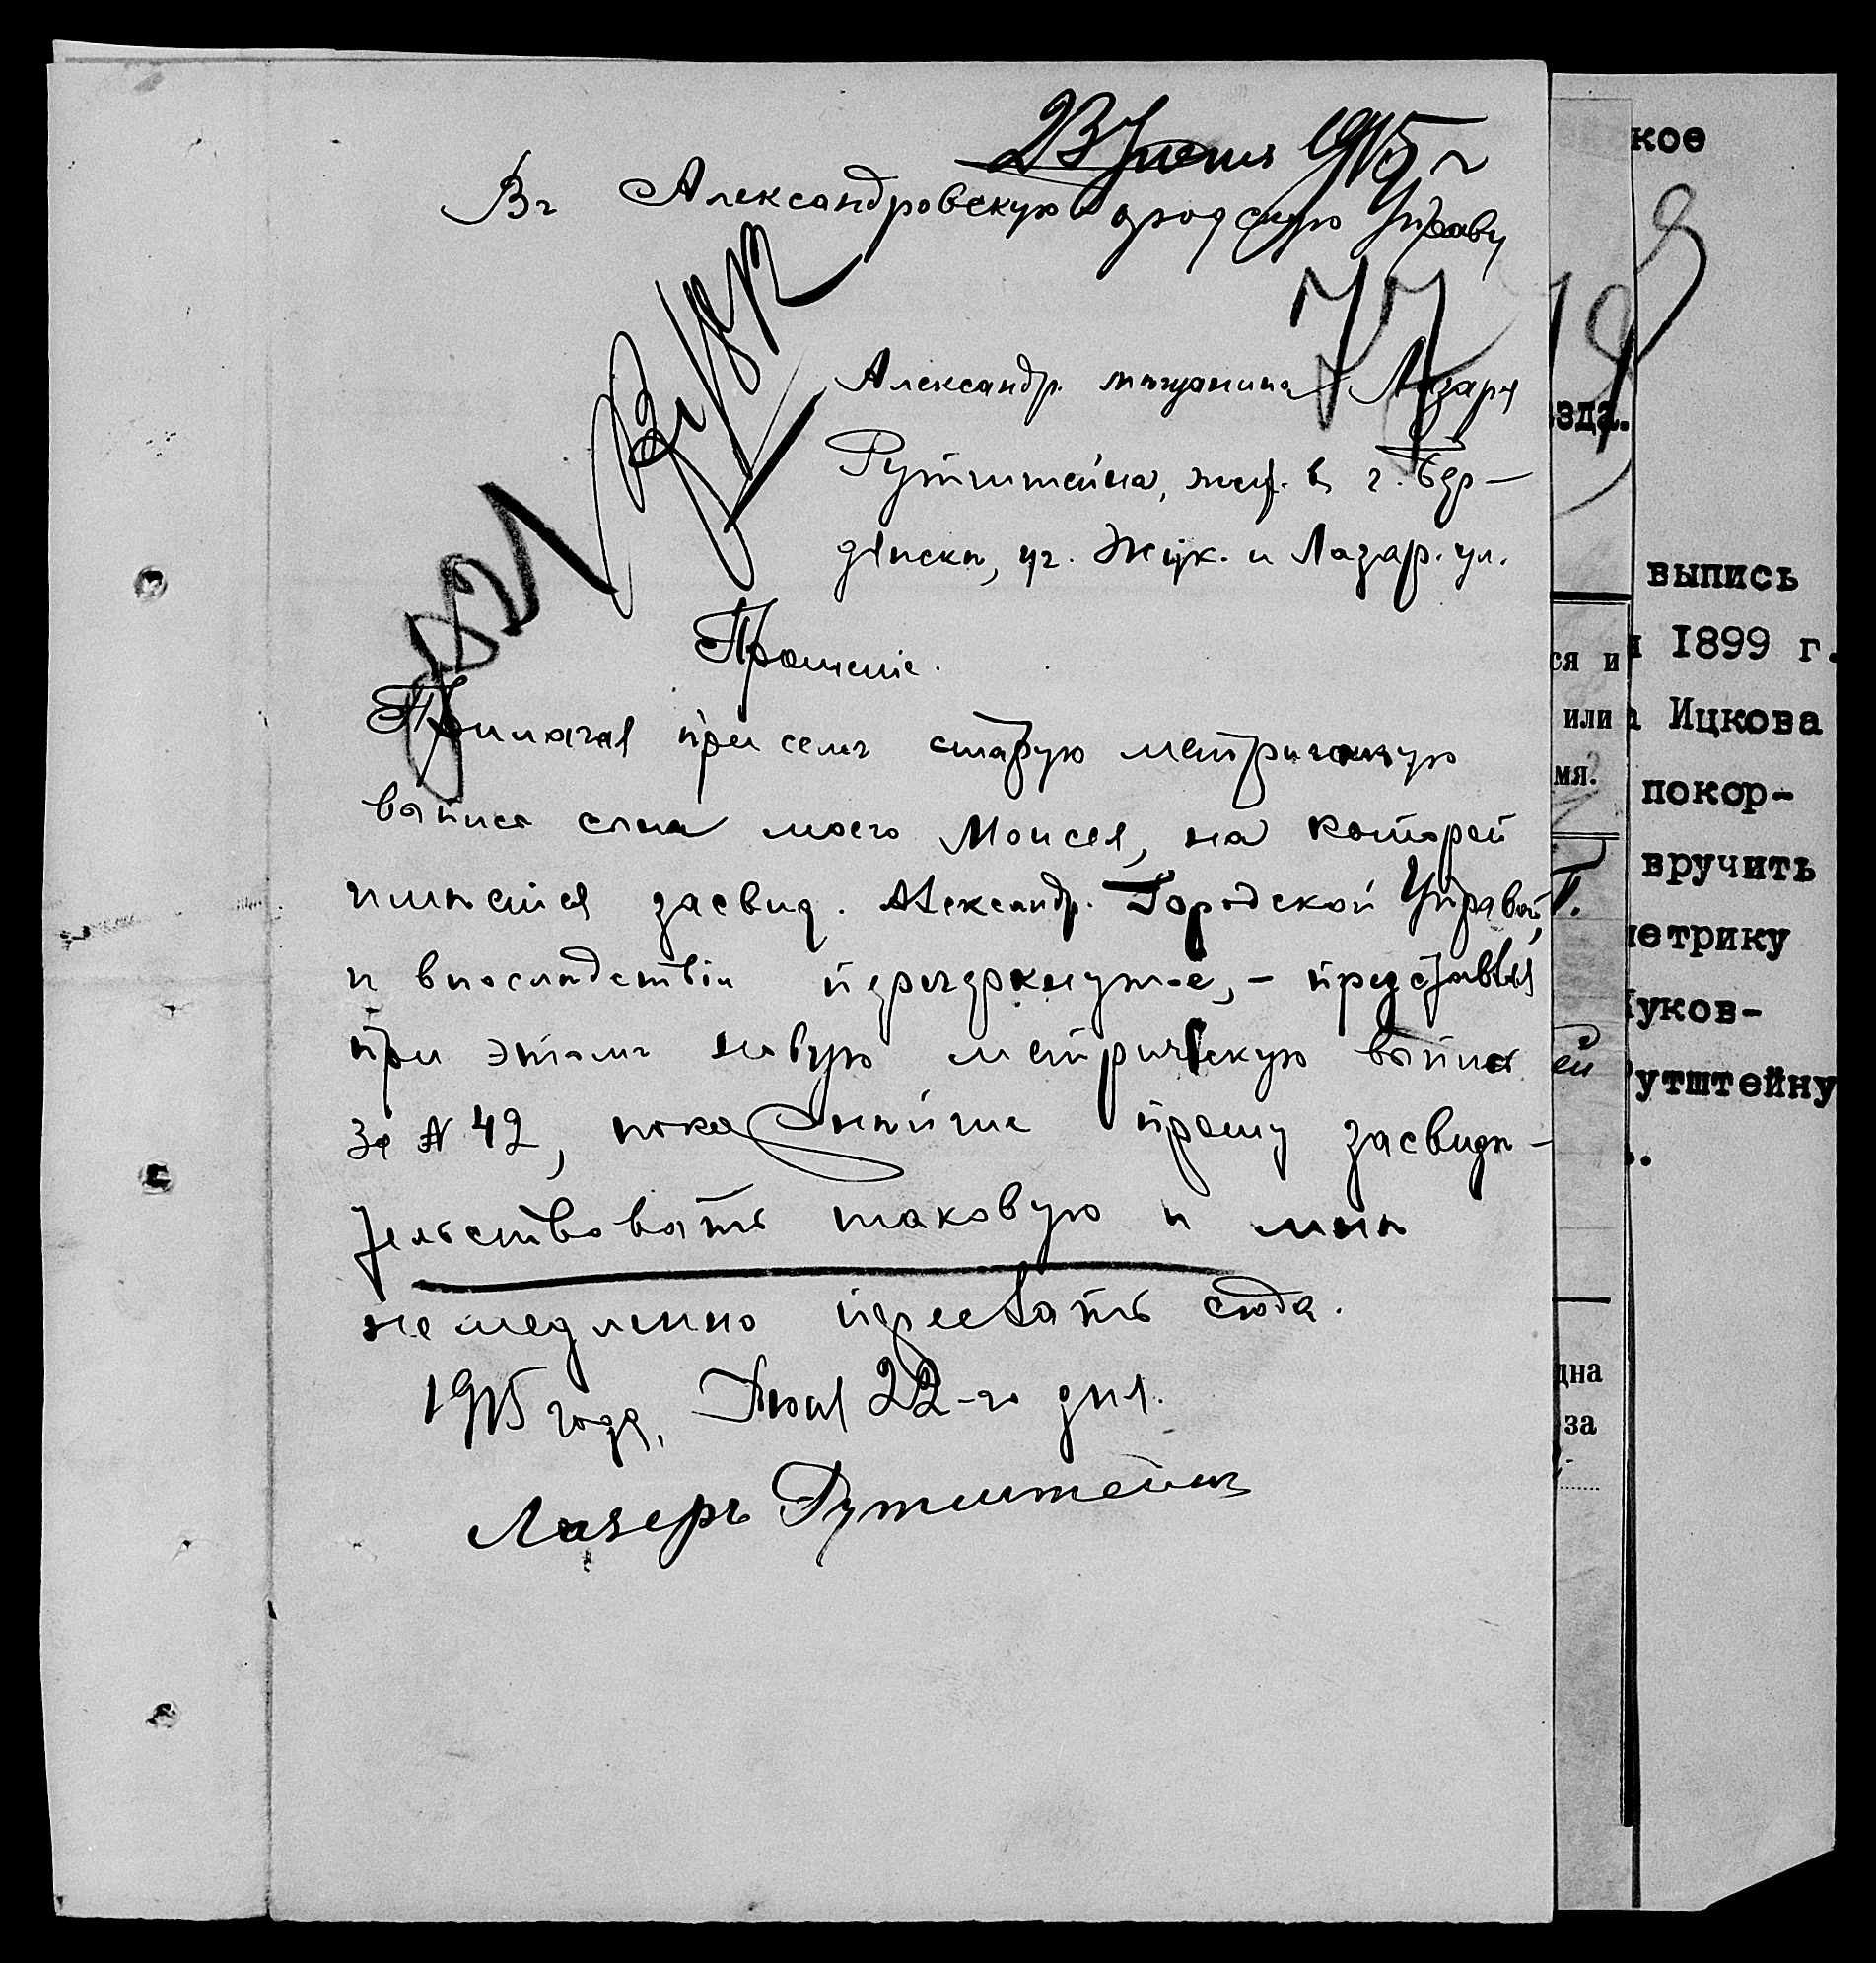 23 Июня 1915 г
Въ Александровскую Городскую Управу
77
Александр. мѣщанина Лазаря
Рутштейна, жив. въ г. Бер-
дянскѣ, уг. Жук. и Лазар. ул.
Прошеніе.
Прилагая при семъ старую метрическую
выпись сына моего Моисея, на которой
имѣется засвид. Александр. Городской Управой,
и впослѣдствіи перечеркнутое, - представляя
при этомъ новую метрическую выпись
за № 42, покорнѣйше прошу засвидѣ-
тельствовать таковую и мнѣ
немедленно переслать сюда.
1915 года, Іюня 22-го дня.
Лазеръ Рутштейнъ
кое
зда.
выпись
1899 г.
ся и
или
Ицкова
мя.
покор-
вручить
г.
метрику
Жуков-
ей
Рутштейну
дна
за